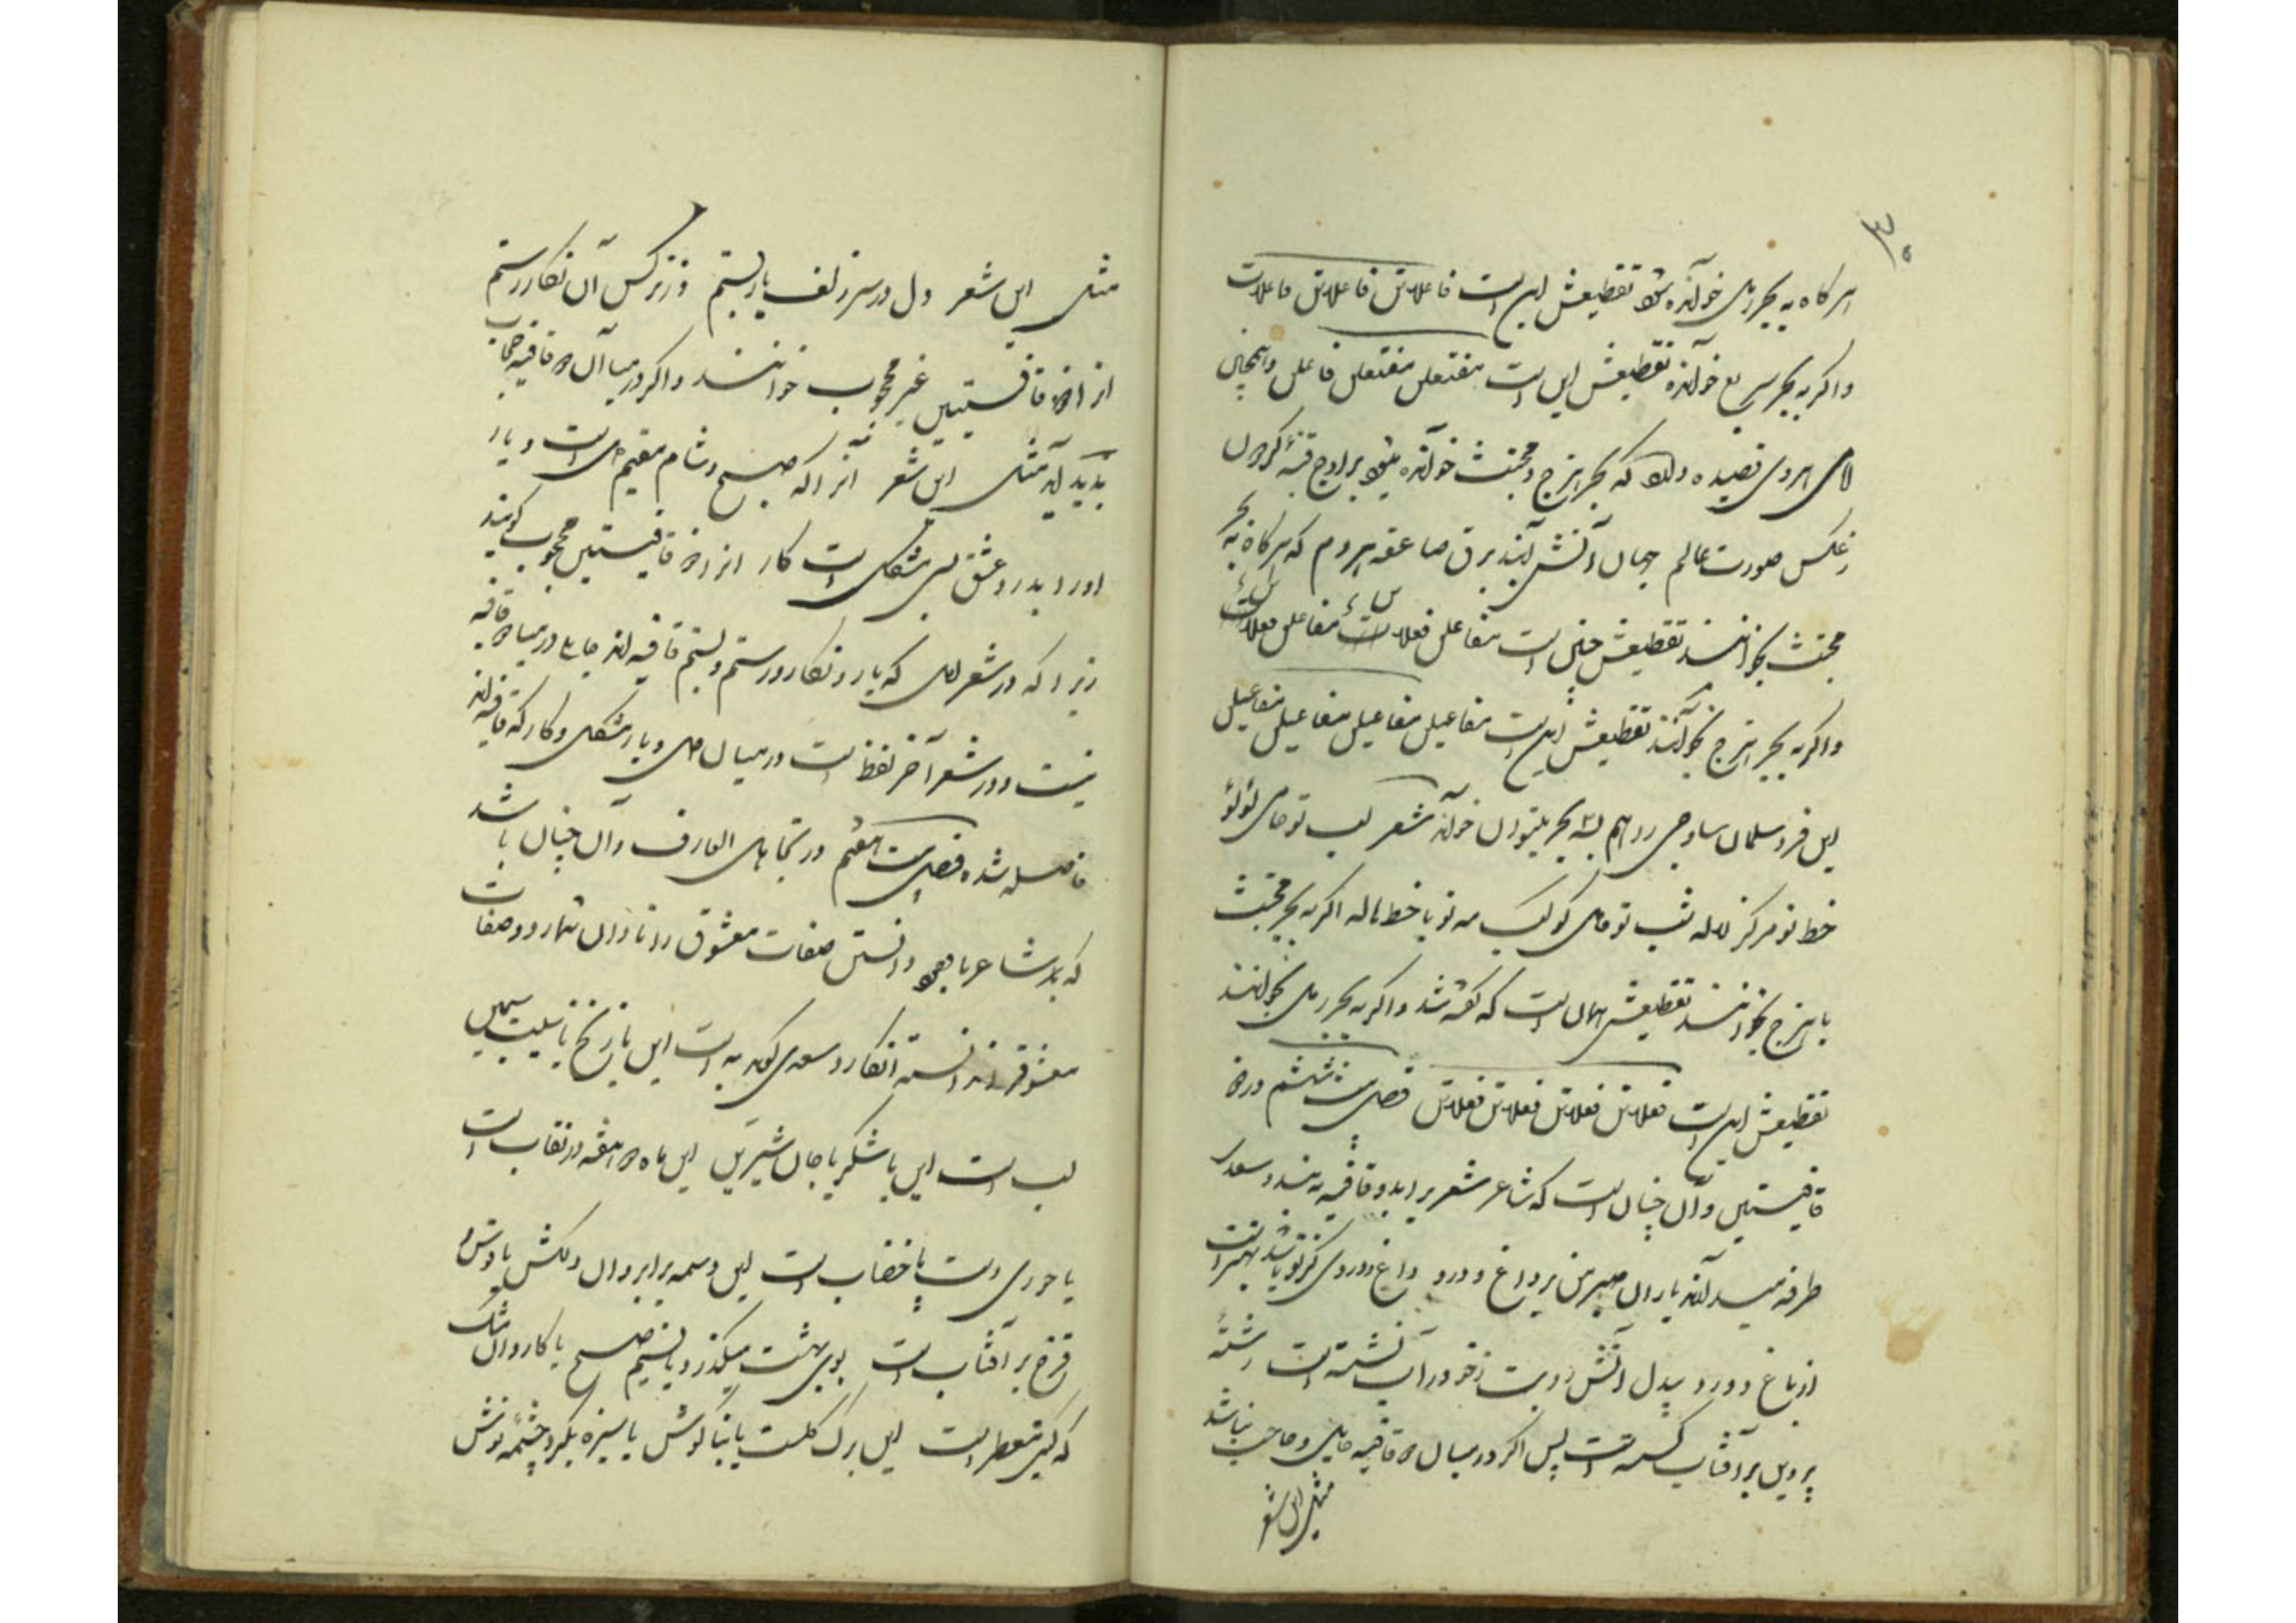 ۳۰
هرگاه به بحر رمل خوانده شود تقطیعش این است فاعلاتن فاعلاتن فاعلات
و اگر به بحر سریع خوانده تقطیعش این است مفتعلن مفتعلن فاعلن و همچنان
قصیده دارد که بحر هزج و مجتث خوانده میشود بر اوج قبهٔ گردون
ز عکس صورت عالم جمال آتش برق صاعقه هر دم که هرگاه به بحر
مجتث بخوانند تقطیعش چنین است مفاعلن فعلات مفاعلن فعلات
و اگر به بحر هزج بخوانند تقطیعش این است مفاعیل مفاعیل مفاعیل مفاعیل
این فرد سلمان ساوجی را هم بسه بحر میتوان خواند شعر لب تو حامی لؤلؤ
خط تو مرکز لاله شب تو حامل کوکب مه تو با خط هاله اگر به بحر مجتث
یا هزج بخوانند تقطیعش همان است که گفته شد و اگر به بحر رمل بخوانند
تقطیعش این است فعلاتن فعلاتن فعلاتن فعلاتن فصل بیست ششم در ذو
قافیتین و آن چنان است که شاعر شعر برا بدو قافیه به بندد سعدی
طرفه میدارند یاران صبر من بر داغ و درد داغ و دردی کز تو باشد بهتر است
از باغ و ورد بیدل آتش رویت ز خود در آب نشسته است رشتهٔ
پروین بر آفتاب گسسته است پس اگر در میان دو قافیه حایل و حاجب نباشد
مثل این شعر
مثل این شعر دل در سر زلف یار بستم وز نرکس آن نکار رستم
انرا ذو قافیتین غیر محجوب خوانند و اگر در میان آن دو قافیه حجاب
بدید آید مثل این شعر آنرا که صبح و شام مقیم دل است و یار
اورا بدرد عشق بسی مشکل است کار انرا ذو قافیتین محجوب گویند
زیرا که در شعر اول که یار و نکار و رستم و بستم قافیه اند حایل در میان دو قافیه
نیست و در شعر آخر لفظ است در میان دل و یار مشکل و کار که قافیه اند
فاصله شده فصل بیست هفتم در تجاهل العارف و آن چنان باشد
که شاعر با وجود دانستن صفات معشوق را نادان شمارد و صفات
معشوقرا ندانسته انکارد سعدی گوید به است این یا زنخ یا سیب سیمین
لب است این یا شکر یا جان شیرین این ماه دو هفته در نقاب است
یا حوری دست یا خضاب است این وسمه بر ابروان دلکش یا قوس
قزح بر آفتاب است بوی بهشت میکذرد یا نسیم صبح یا کاروان مشک
که کیتی معطر است این برک کلست یا بناکوش یا سبزه بکرد چشمه نوش